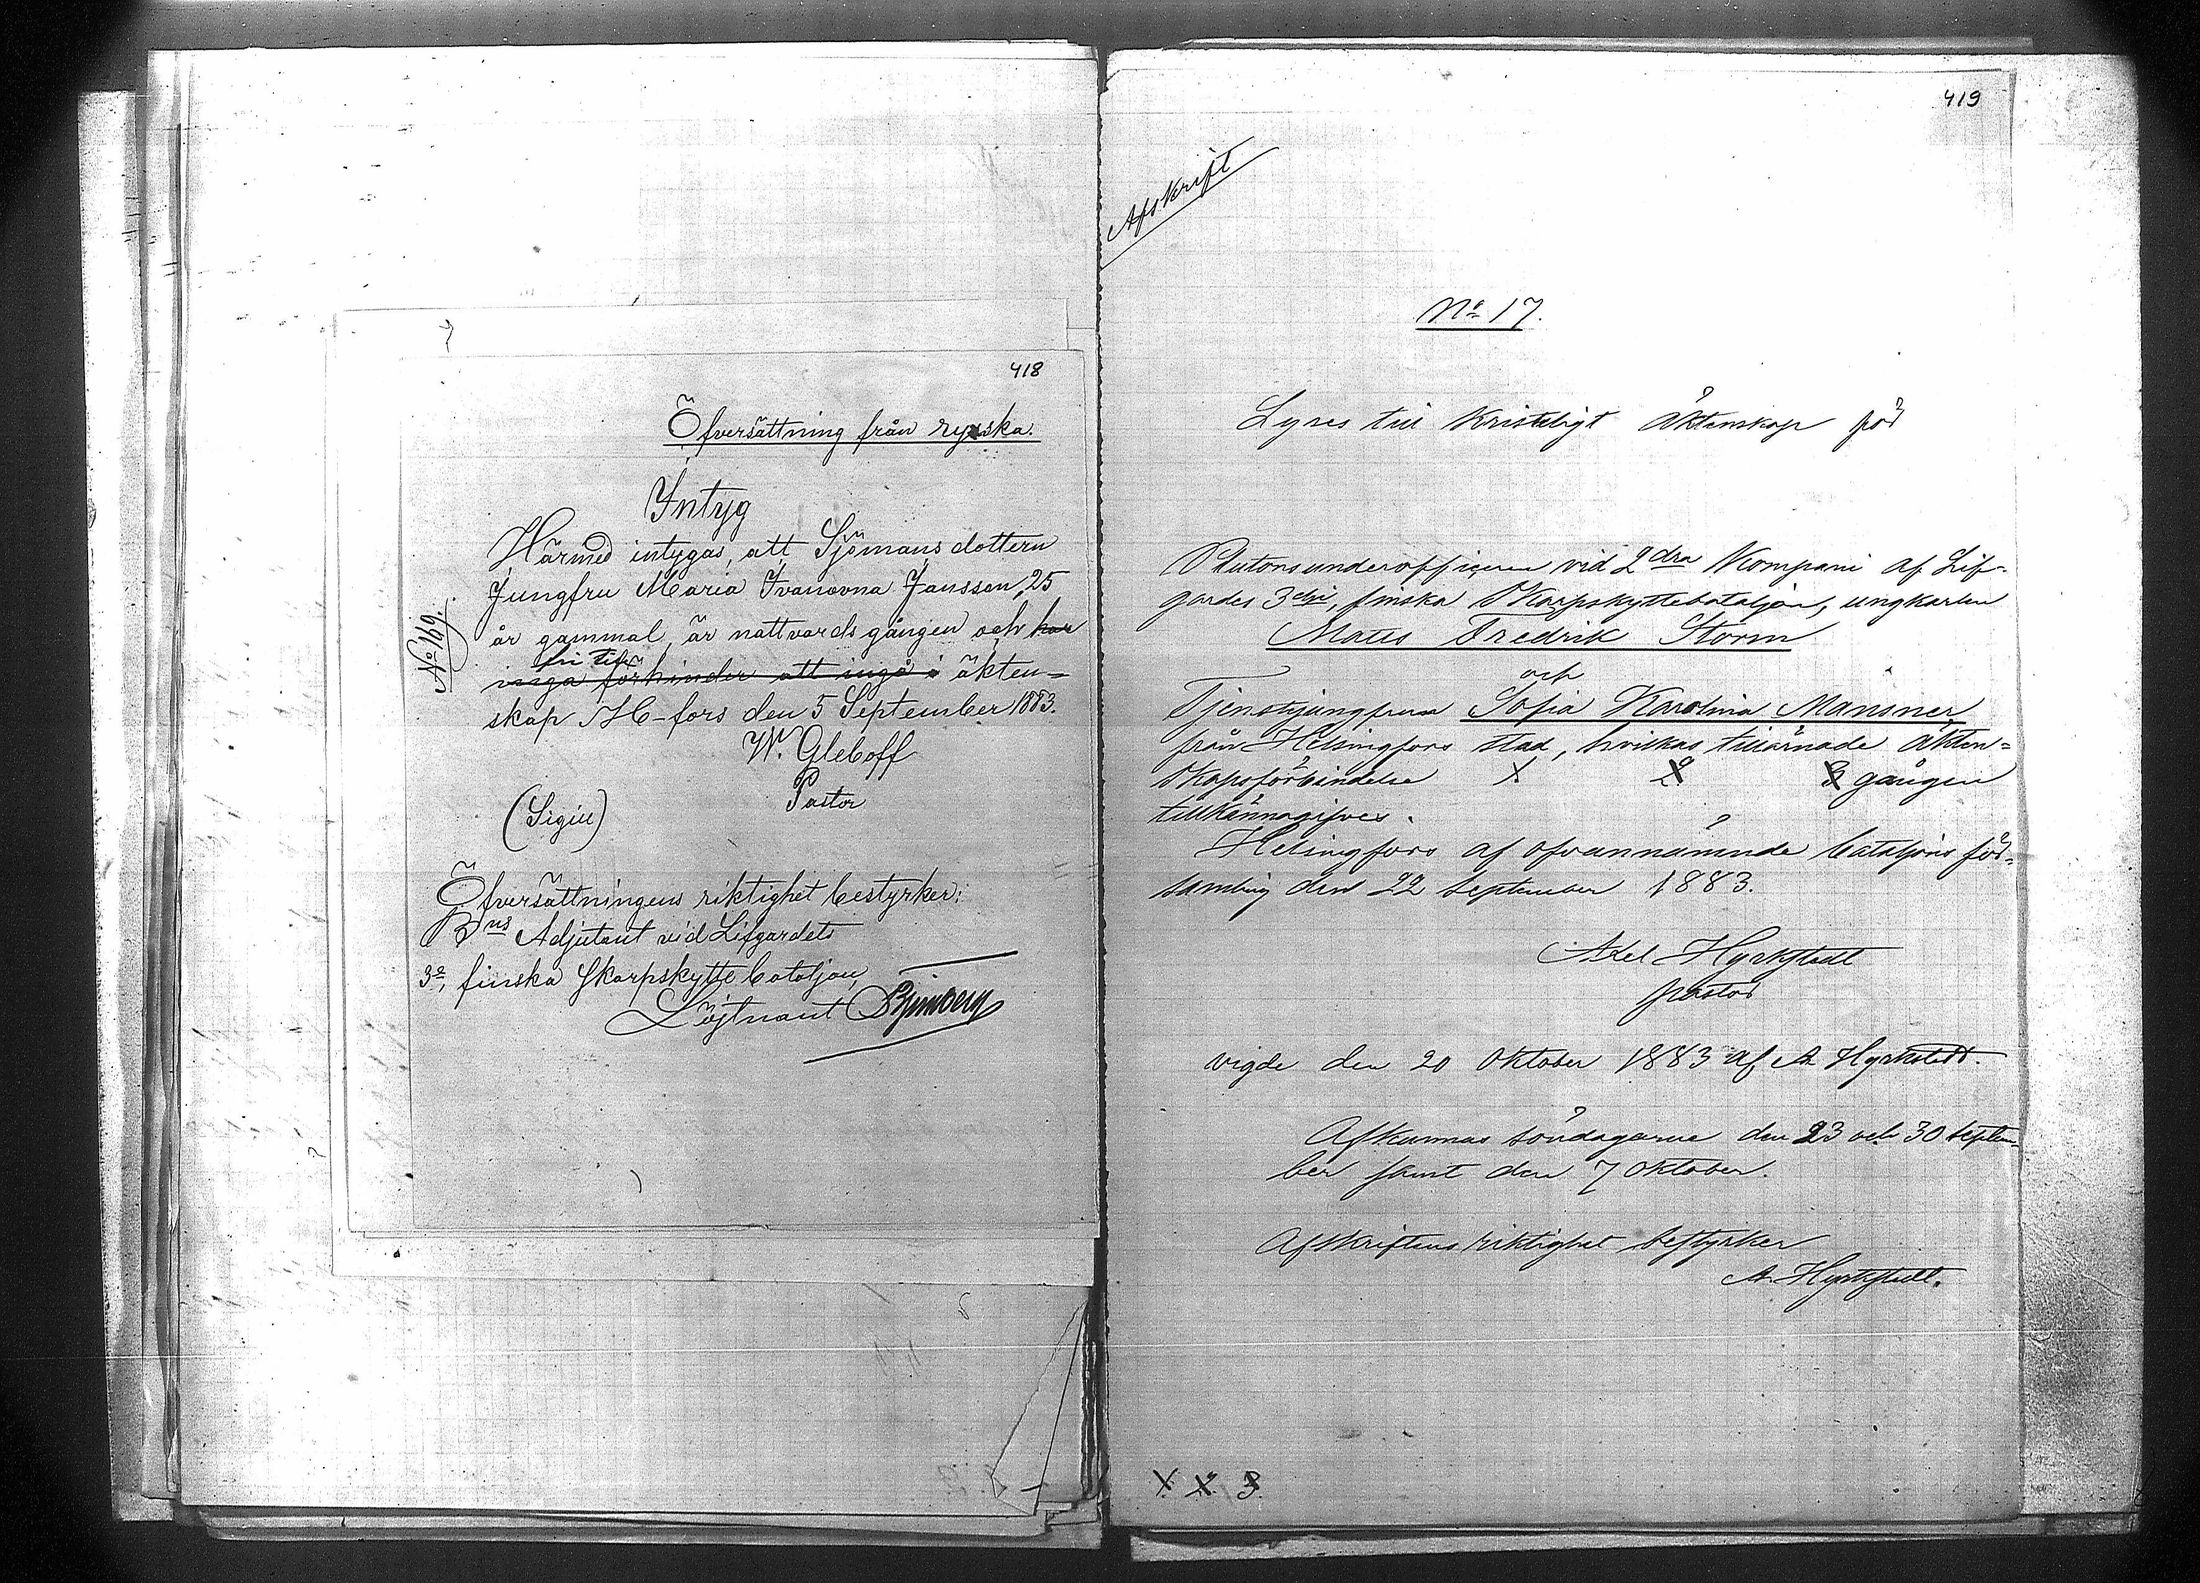 418
Öfversättning från ryska.
Intyg
Härmed intygas, att Sjömansdottern
Jungfru Maria Ivanovna Jansson, 25
år gammal, är nattvardsgången och har
fri till
inga förhinder att ingå i äkten-
skap. H-fors den 5 September 1883.
W. Gleboff
Pastor
(Sigill)
No 169.
Öfversättningens riktighet bestyrker:
Adjutant vid Lifgardets
3e, finska Skarpskyttebataljon,
Löjtnant
419
Afskrift
No 17.
Lyses till kristeligt äktenskap för
Plutonsunderofficeren vid 2dra Kompani af Lif-
gardes 3dje, finska Skarpskyttebataljon, ungkarlen
Matts Fredrik Storm
och
Tjenstejungfrun Sofia Karolina Mansner
från Helsingfors stad, hvilkas tillärnade äkten-
skapsförbindelse X 2 3 gången
tillkännagifves.
Helsingfors af ofvannämnde bataljons för-
samling den 22 September 1883.
Axel Hyrkstedt
pastor
vigde den 20 Oktober 1883 af A Hyrkstedt.
Afkunnas söndagarne den 23 och 30 Septem-
ber samt den 7 Oktober.
Afskriftens riktighet bestyrker
A. Hyrkstedt.
X X 3